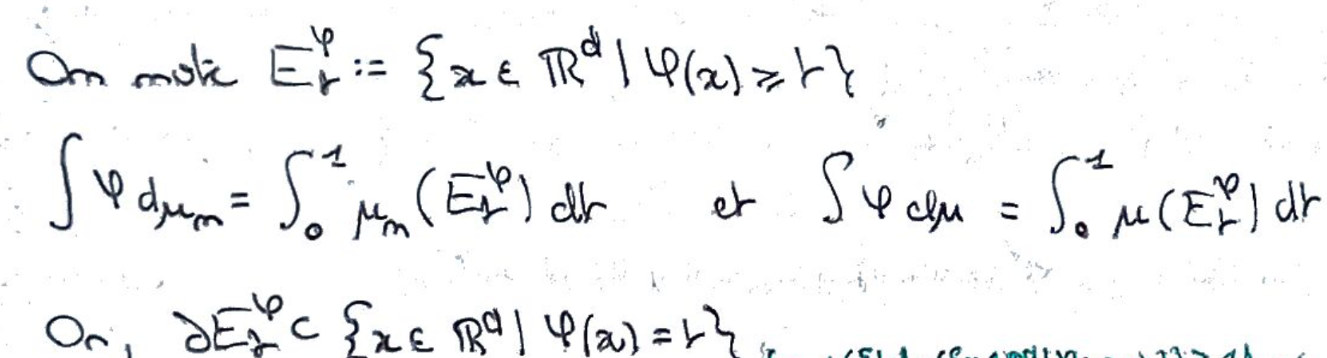 On note E_r^φ := {x ∈ ℝ^d | φ(x) ≥ r}
∫ φ dμ_n = ∫_0^1 μ_n(E_r^φ) dr et ∫ φ dμ = ∫_0^1 μ(E_r^φ) dr
Or, ∂E_r^φ ⊂ {x ∈ ℝ^d | φ(x) = r}